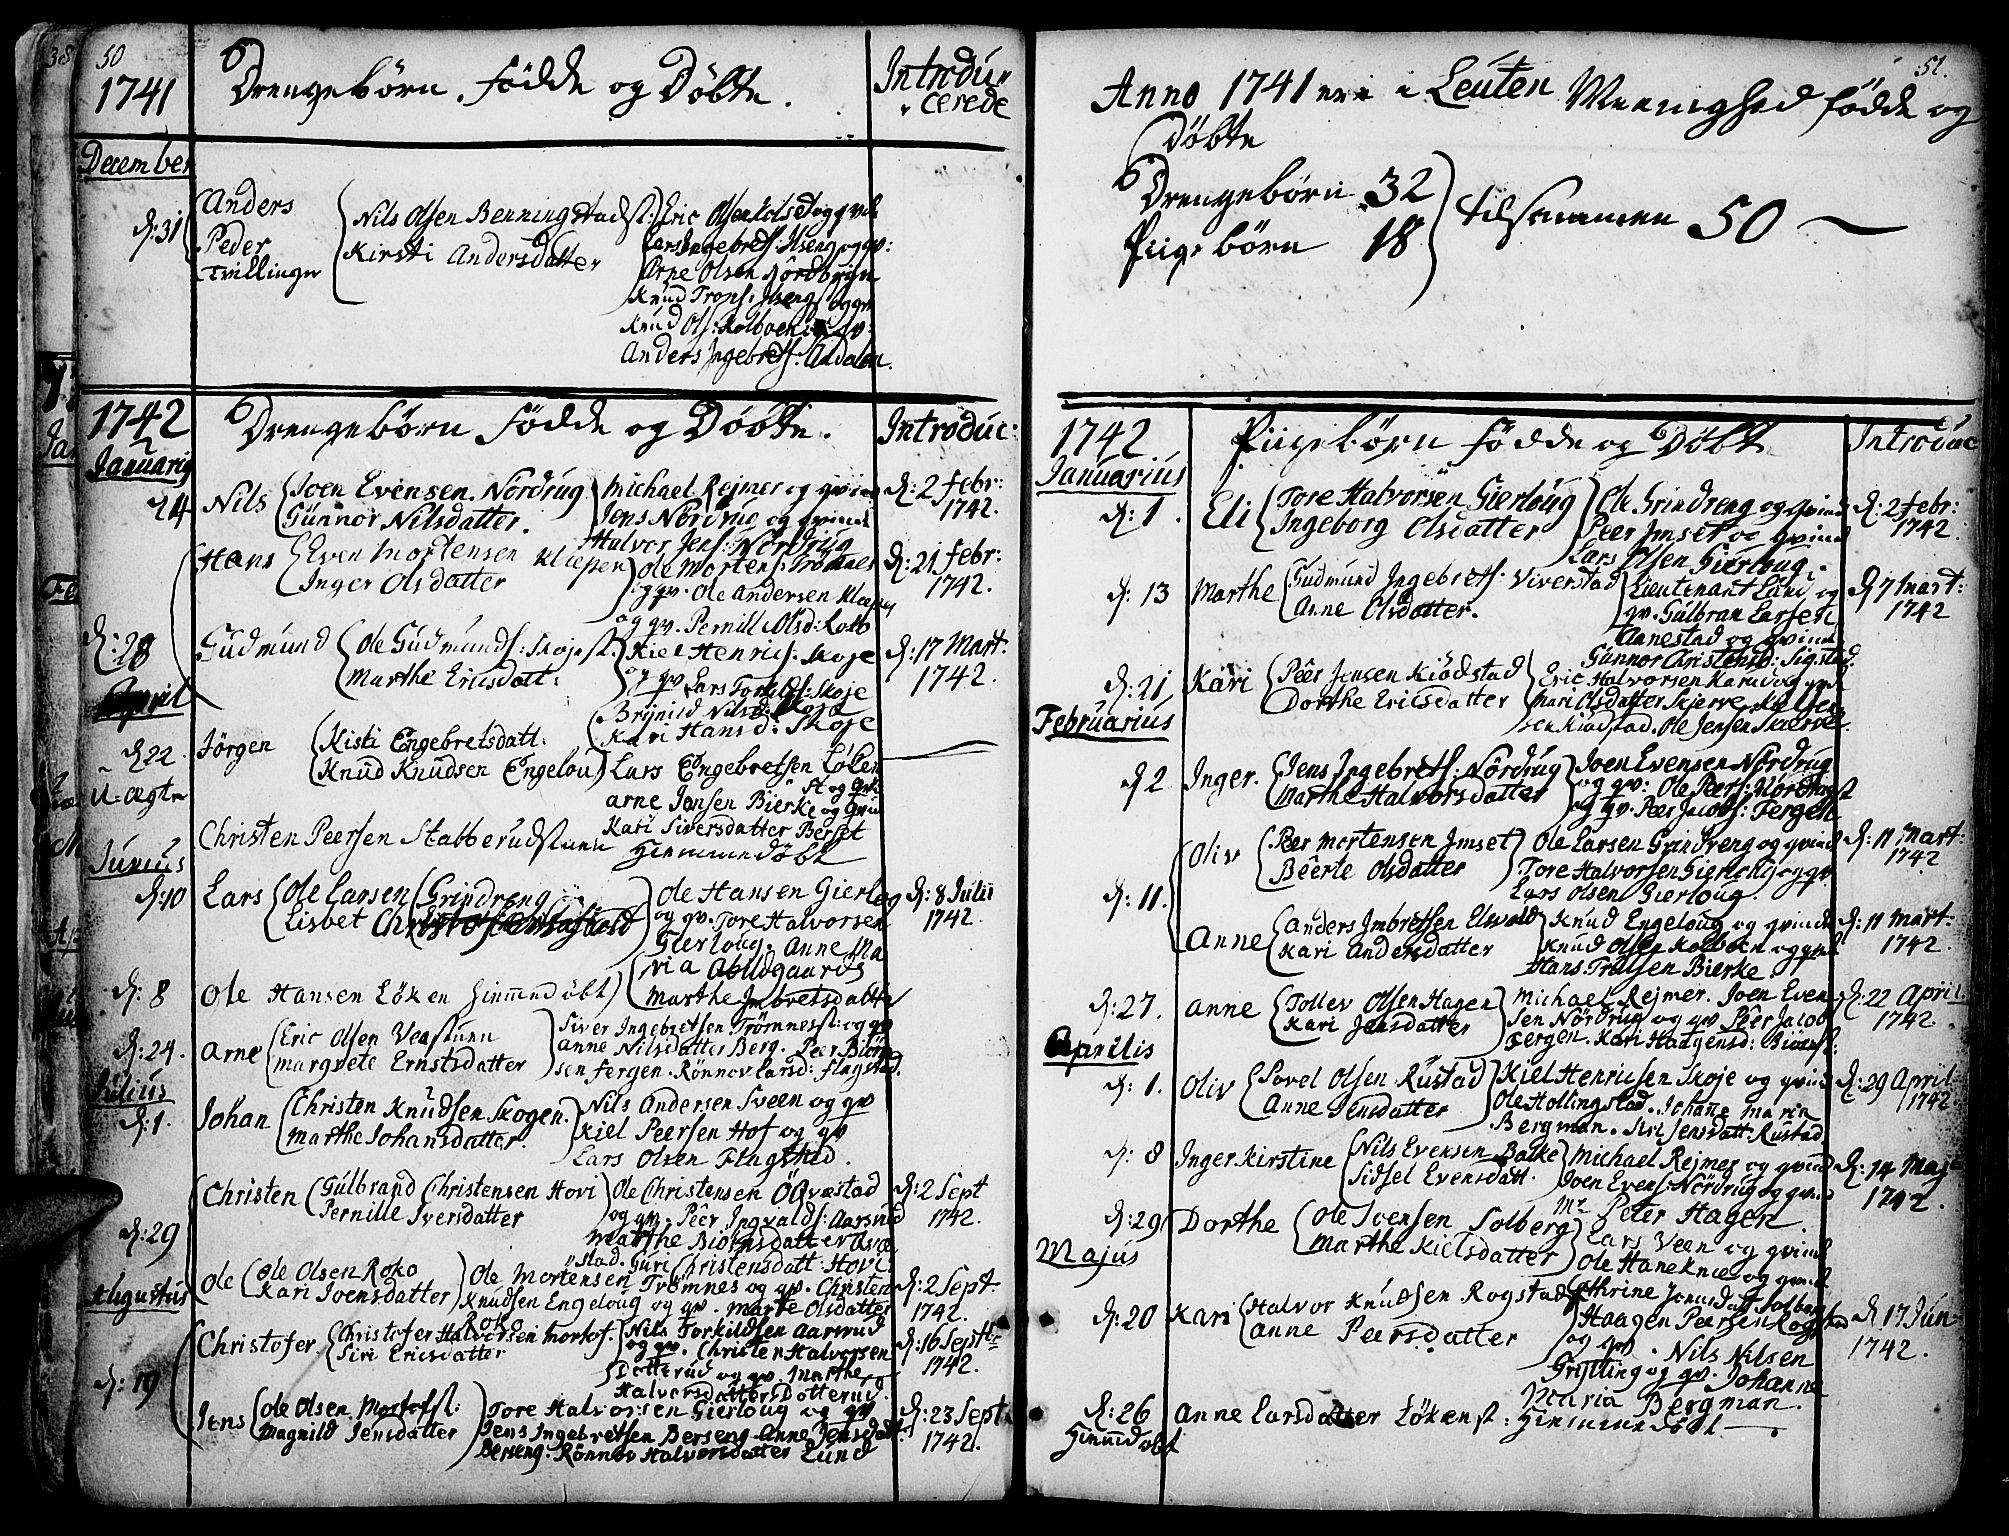 50
1741
Drengebörn. födde og Döbte.
Introdu„
„cerede
December
d: 31
Anders
Peder
Tvillinger
Nils Olsen Benningstadst:
Kirsti Andersdatter
Eric Olsen
Lars Ingebrets: Ilseng og qv:
Arne Olsen Nordbygn
Knud Trons: Ilseng og qv
Knud Ols: Kolboen
Anders Ingebrets: Aadalen.
1742
Drengebörn födde og Döbte.
Introduc:
Januarij
24
Nils
Joen Evensen Nordrug
Gunnor Nilsdatter.
Michael Rejmer og qvind
Jens Nordrug og qvind
Halvor Jens: Nordrug
d: 2 febr:
1742.
Hans
Even Mortensen Klæpen
Inger Olsdatter
Ole Mortens: Trömnes
og qv. Ole Andersen Klæpen
og qv. Pernill Olsd: Kolb
d: 21 febr:
1742.
d: 28
Gudmund
Ole Gudmunds: Skojest:
Marthe Ericsdatt:
Kiel Henrics: Skoje
og qv Lars Torkilds: Skoje
Brynild Nilsd: Skoje
Kari Hansd: Skoje
d: 17 Mart:
1742.
April
d 22.
u-ægte
Jörgen
Kisti Engebretsdatt.
Knud Knudsen Engelou
Lars Engebretsen Löken
st og qv:
Arne Jonsen Bierke og qvin
Kari Siversdatter Berset
Christen Peersen Stabberudstuen
Hiemmedöbt
Junius
d: 10
Lars
Ole Larsen Grindreng
Lisbet
Ole Hansen Gierlog
og qv. Tore Halvorsen
Gierloug. Anne Ma
ria Abildgaards
Marthe Imbretsdatter
d: 8 Julii
1742.
d: 8
Ole Hansen Löken Hiemmedöbt
d: 24.
Arne
Eric Olsen Veastuen
Margrete Ernstsdatter
Siver Ingebretsen Trömnesst: og qv
Anne Nilsdatter Berg. Peer Biörn
sen Fergen. Rönnov Larsd: Flagstad.
Julius
d: 1.
Johan
Christen Knudsen Skogen
Marthe Johansdatter.
Nils Andersen Sveen og qv
Kiel Peersen Hof og qv
Lars Olsen Flagstad.
d: 29
Christen
Gulbrand Christensen Hovi
Pernille Iversdatter
Ole Christensen Öqvæstad
og qv. Peer Ingvalds: Aarsrud
Marthe Biörnsdatter Övæ
stad. Guri Christensdatt: Hovi.
d: 2 Sept
1742.
Augustus
Ole
Ole Olsen Roko
Kari Joensdatter
Ole Mortensen Trömnes og qv. Christen
Knudsen Engeloug og qv. Marte Olsdatter
Roko
d: 2 Sept.
1742.
d: 19
Christofer
Christofer Halvorsen Mortof.
Siri Ericsdatter
Nils Torkildsen Aarsrud
og qv. Christen Halvorsen
Dotterud og qv. Marthe
Halvorsdatter Dotterud.
d: 16 Septbr
1742.
Jens
Ole Olsen Mortofst:
Magnild Jensdatter
Tore Halvorsen Gierloug og qv
Jens Ingebretsen Berseng. Anne Jensdat
Berseng. Rönnov Halvorsdatter Lund
d: 23 Sept.
1742.
51.
Anno 1741 ere i Leuten Meenighed födde og
Döbte
Drengebörn 32
Pigebörn 18
tilsammen 50
1742
Pigebörn födde og Döbt
Introduc
Januarius
d: 1.
Eli
Tore Halvorsen Gierloug
Ingeborg Olsdatter
Ole Grindreng og qvind
Peer Imset og qvind
Lars Olsen Gierloug.
d: 2 febr:
1742.
d: 13
Marthe
Gudmund Ingebrets: Viverstad
Anne Olsdatter.
Lieutenant Lund og
qv. Gulbran Larsen
Aanestad og qvind
Gunnor Christensd: Sigstad.
d 7 Mart:
1742
d: 21
Kari
Peêr Jensen Kiödstad
Dorthe Ericsdatter
Eric Halvorsen
Mari Olsdatter Skjerve
sen Kiödstad. Ole Jensen Skierve.
Februarius
d 2
Inger.
Jens Ingebrets: Nordrug
Marthe Halvorsdatter
Joen Evensen Nordrug
og qv: Ole Peers:
og qv. Peer Jacobs: Fergen
d: 11.
Oliv
Peer Mortensen Imset
Beerte Olsdatter
Ole Larsen Grindreng og qvind
Tore Halvorsen Gierloug og qv
Lars Olsen Gierloug.
d: 11 Mart:
1742
Anne
Anders Imbretsen Elsvold
Kari Andersdatter
Knud Engeloug og qvinde
Knud Olsen Kolboen og qvd
Hans Trulsen Bierke.
d: 11 Mart:
1742.
d: 27.
Anne
Tollev Olsen Hagen
Kari Jensdatter
Michael Rejmer. Joen Even
sen Nordrug og qv Peêr Jacob
Fergen. Kari Haagensd:
d: 22 April.
1742.
Aprilis
d: 1.
Oliv
Sovel Olsen Rustad
Anne Jensdatter
Kiel Henricsen Skoje og qvind
Ole Hollingstad. Johanne Maria
Bergman. Siri Jensdatt: Rustad.
d: 29 April.
1742.
d: 8
Inger Kirstine
Nils Evensen Balke
Sidsel Evensdatt.
Michael Rejmer og qvind
Joen Evens: Nordrug og qvind
Mr Peter Hagen
d: 14 Maji
1742.
d: 29
Dorthe
Ole Svensen Solberg
Marthe Kielsdatter
Lars Veen og qvind
Ole Haneknæ og qvind
Majus
d: 20
Kari
Halvor Knudsen Rogstad
Anne Peersdatter
Haagen Peersen Rogstad
og qv. Nils Nilsen
Grylling og qv. Johanne
Maria Bergman.
d 17 Jun
1742.
d: 26
Hiemmdöbt
Anne Larsdatter Lökenst: Hiemmedöbt